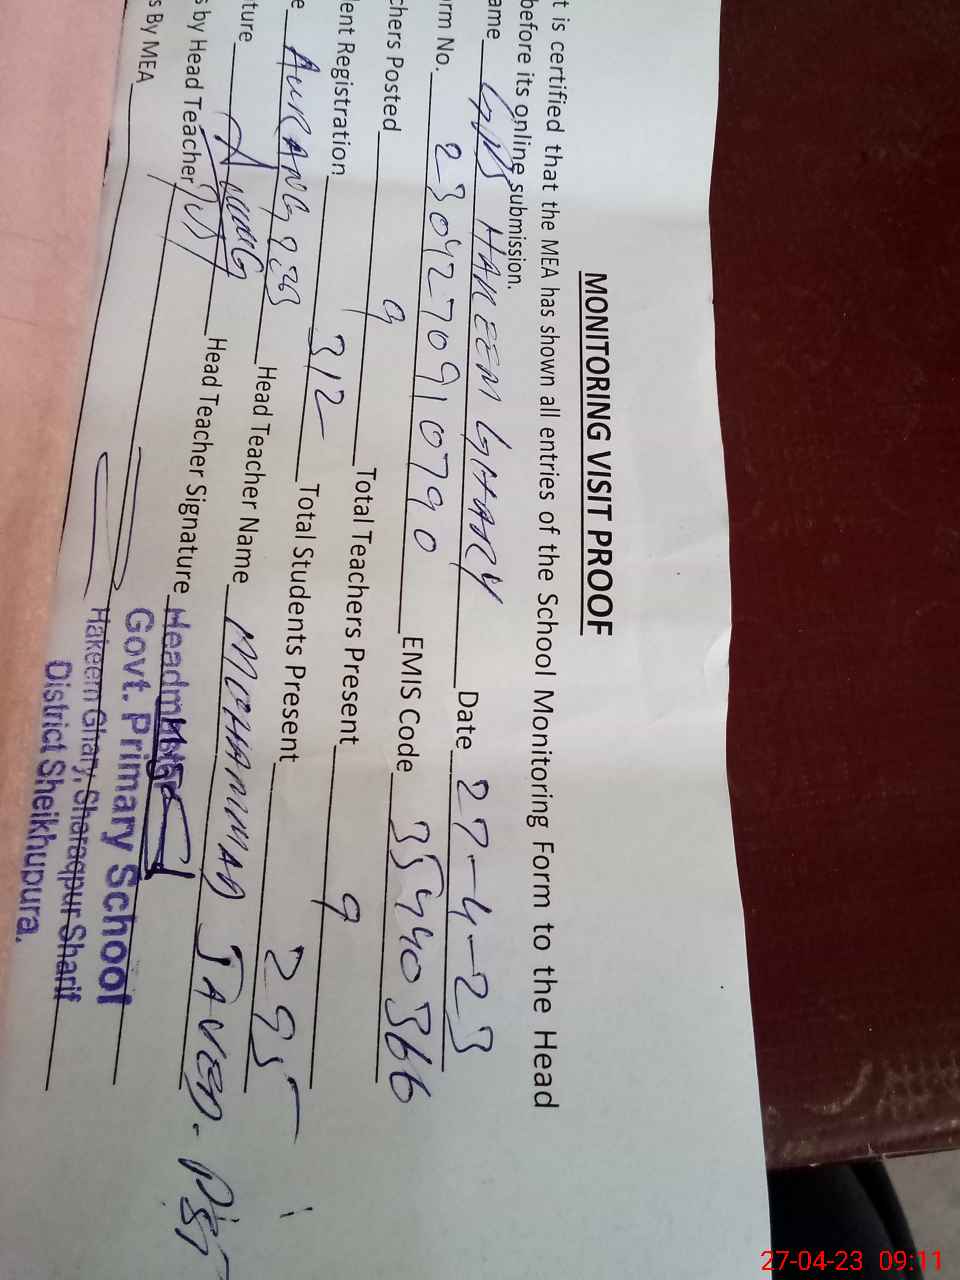 MONITORING VISIT PROOF
t is certified that the MEA has shown all entries of the School Monitoring Form to the Head
before its online submission.
ame GPS HAKEEM GHARY Date 27-4-23
orm No. 2304270910790 EMIS Code 35440366
chers Posted 9 Total Teachers Present 9
lent Registration 312 Total Students Present 295
e AURANGZEB Head Teacher Name MUHAMMAD JAVED. PST
ture Head Teacher Signature
s by Head Teacher
s By MEA
Headmaster
Govt. Primary School
Hakeem Ghary, Sharaqpur Sharif
District Sheikhupura.
27-04-23 09:11